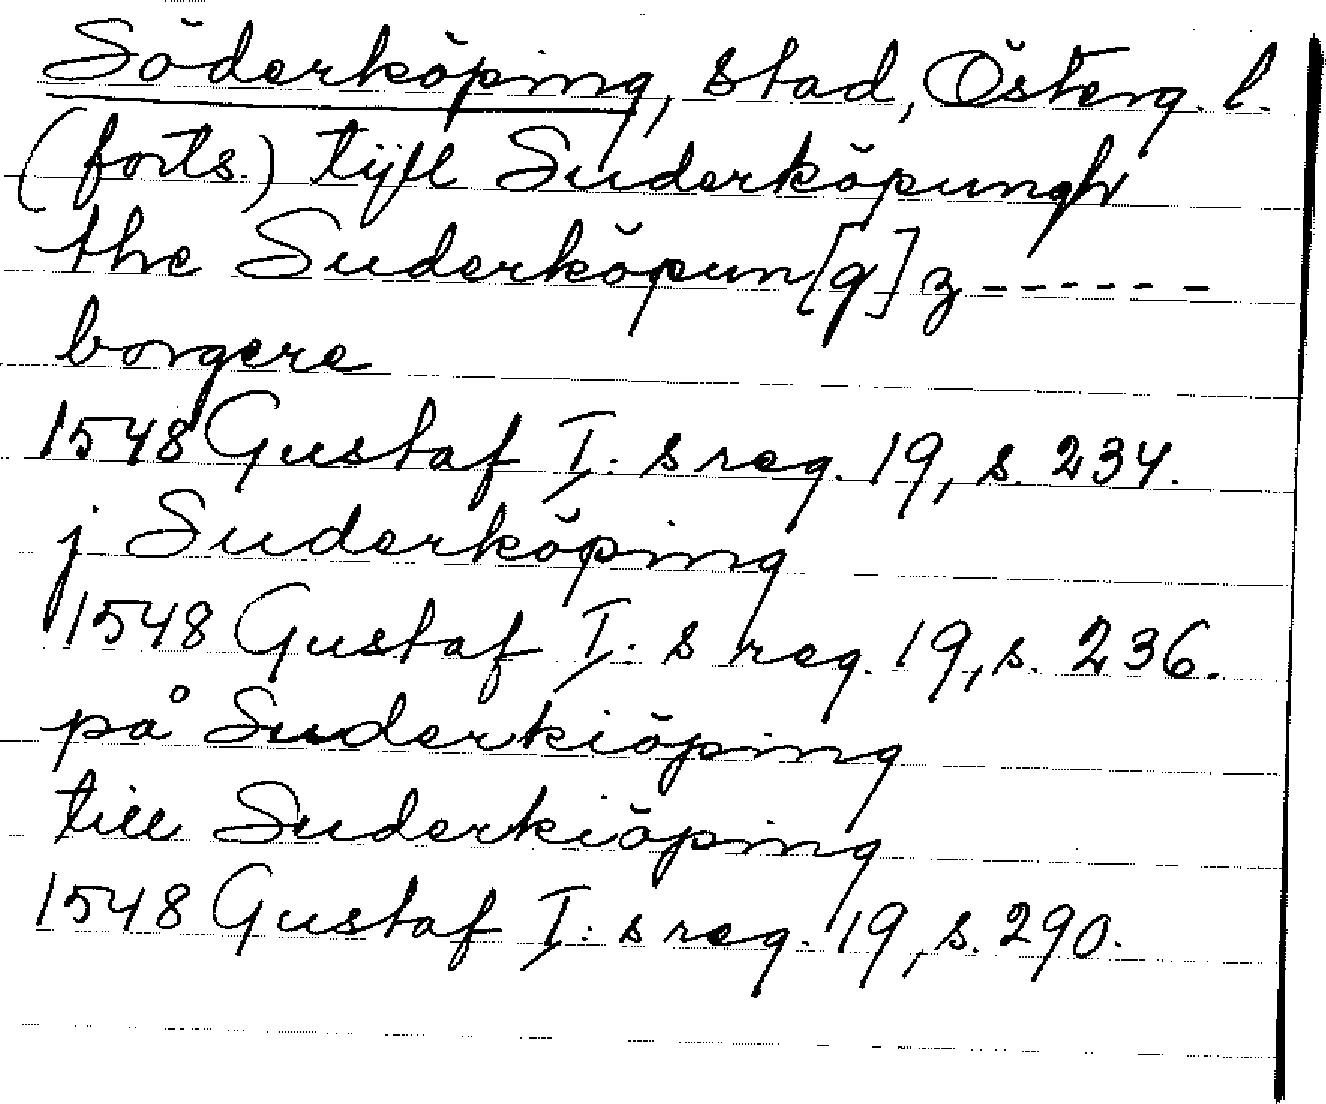 Söderköping, stad, Österg. l.
(forts.) tijll Suderköpungh
the Suderköpun[g]z ------
borgere
1548 Gustaf I:s reg. 19, s. 234.
j Suderköping
1548 Gustaf I:s reg. 19, s. 236.
på Suderkiöping
till Suderkiöping
1548 Gustaf I:s reg. 19, s. 290.